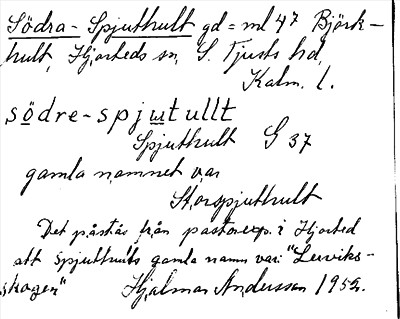 Södra-Spjuthult gd = ml 47 Björk-
hult, Hjorteds sn, S. Tjusts hd,
Kalm. l.
södre-spjutullt
Spjuthult G 37
gamla namnet var
Storspjuthult
Det påstås från pastorsexp. i Hjorted
att Spjuthults gamla namn var: "Lerviks-
skogen"
Hjalmar Andersson 1952.